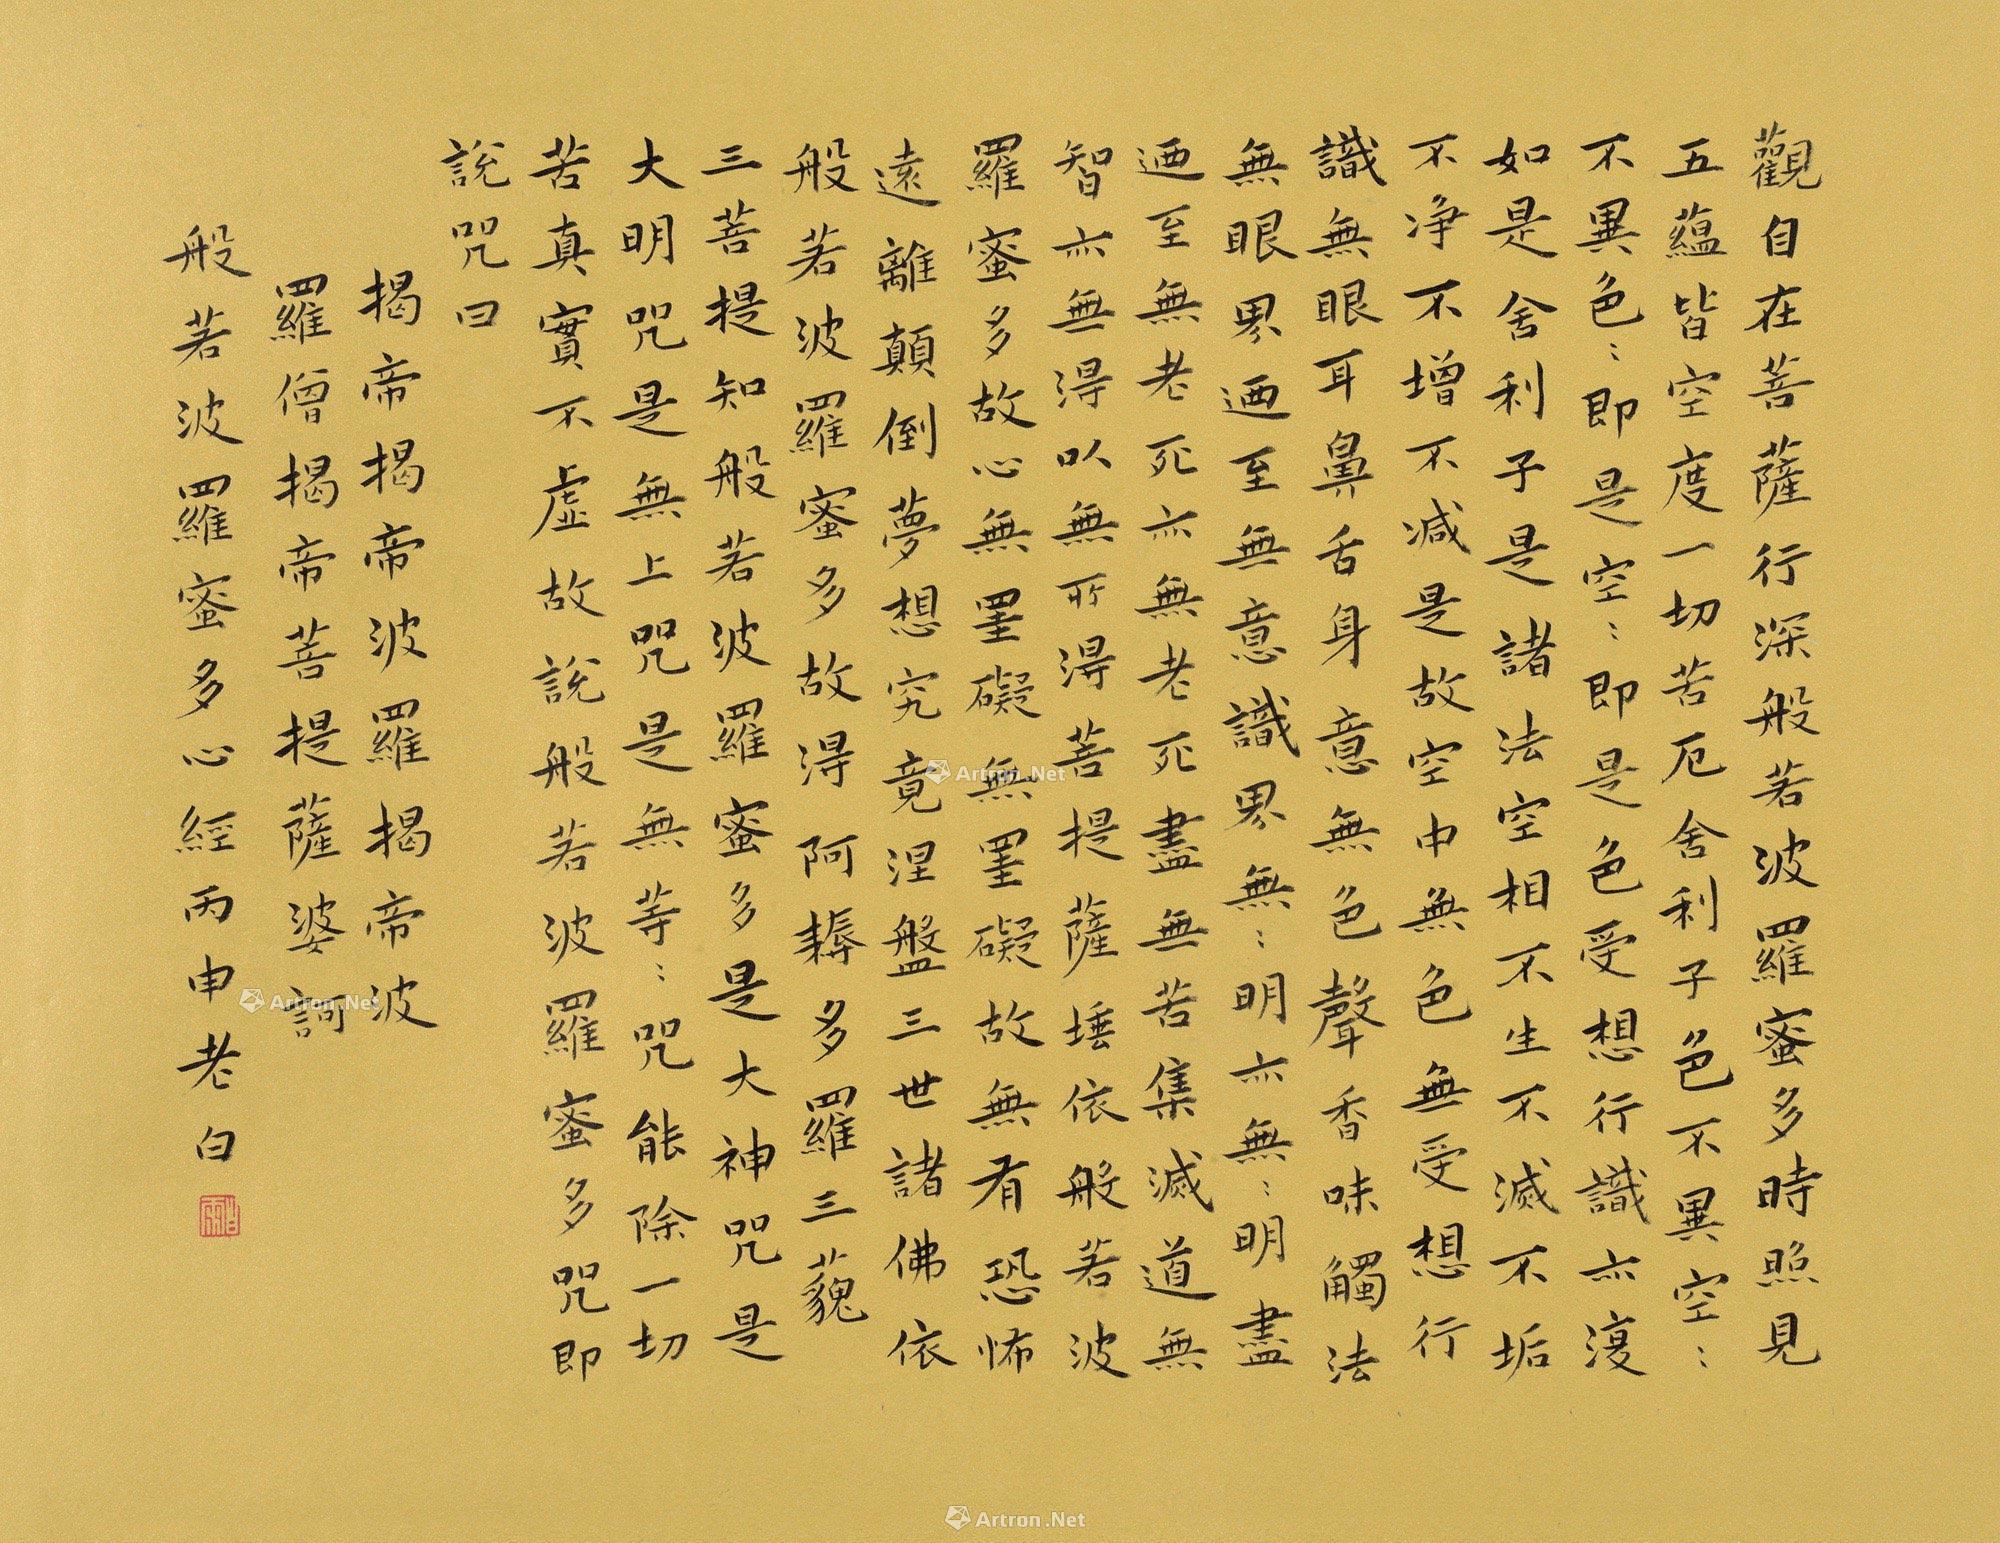 觀自在菩薩行深般若波羅蜜多時照見
五蘊皆空度一切苦厄舍利子色不異空：
不異色：即是空：即是色受想行識亦復
如是舍利子是諸法空相不生不滅不垢
不净不增不减是故空中無色無受想行
識無眼耳鼻舌身意無色聲香味觸法
無眼界迺至無意識界無：明亦無：明盡
迺至無老死亦無老死盡無苦集滅道無
智亦無得以無所得菩提薩埵依般若波
羅蜜多故心無罣礙無罣礙故無有恐怖
遠離顛倒夢想究竟涅盤三世諸佛依
般若波羅蜜多故得阿耨多羅三藐
三菩提知般若波羅蜜多是大神咒是
大明咒是無上咒是無等：咒能除一切
苦真實不虛故說般若波羅蜜多咒即
說咒曰
揭帝揭帝波羅揭帝波
羅僧揭帝菩提薩婆訶
般若波羅蜜多心經丙申老白
Artron.Net
Artron.Net
Artron.Net